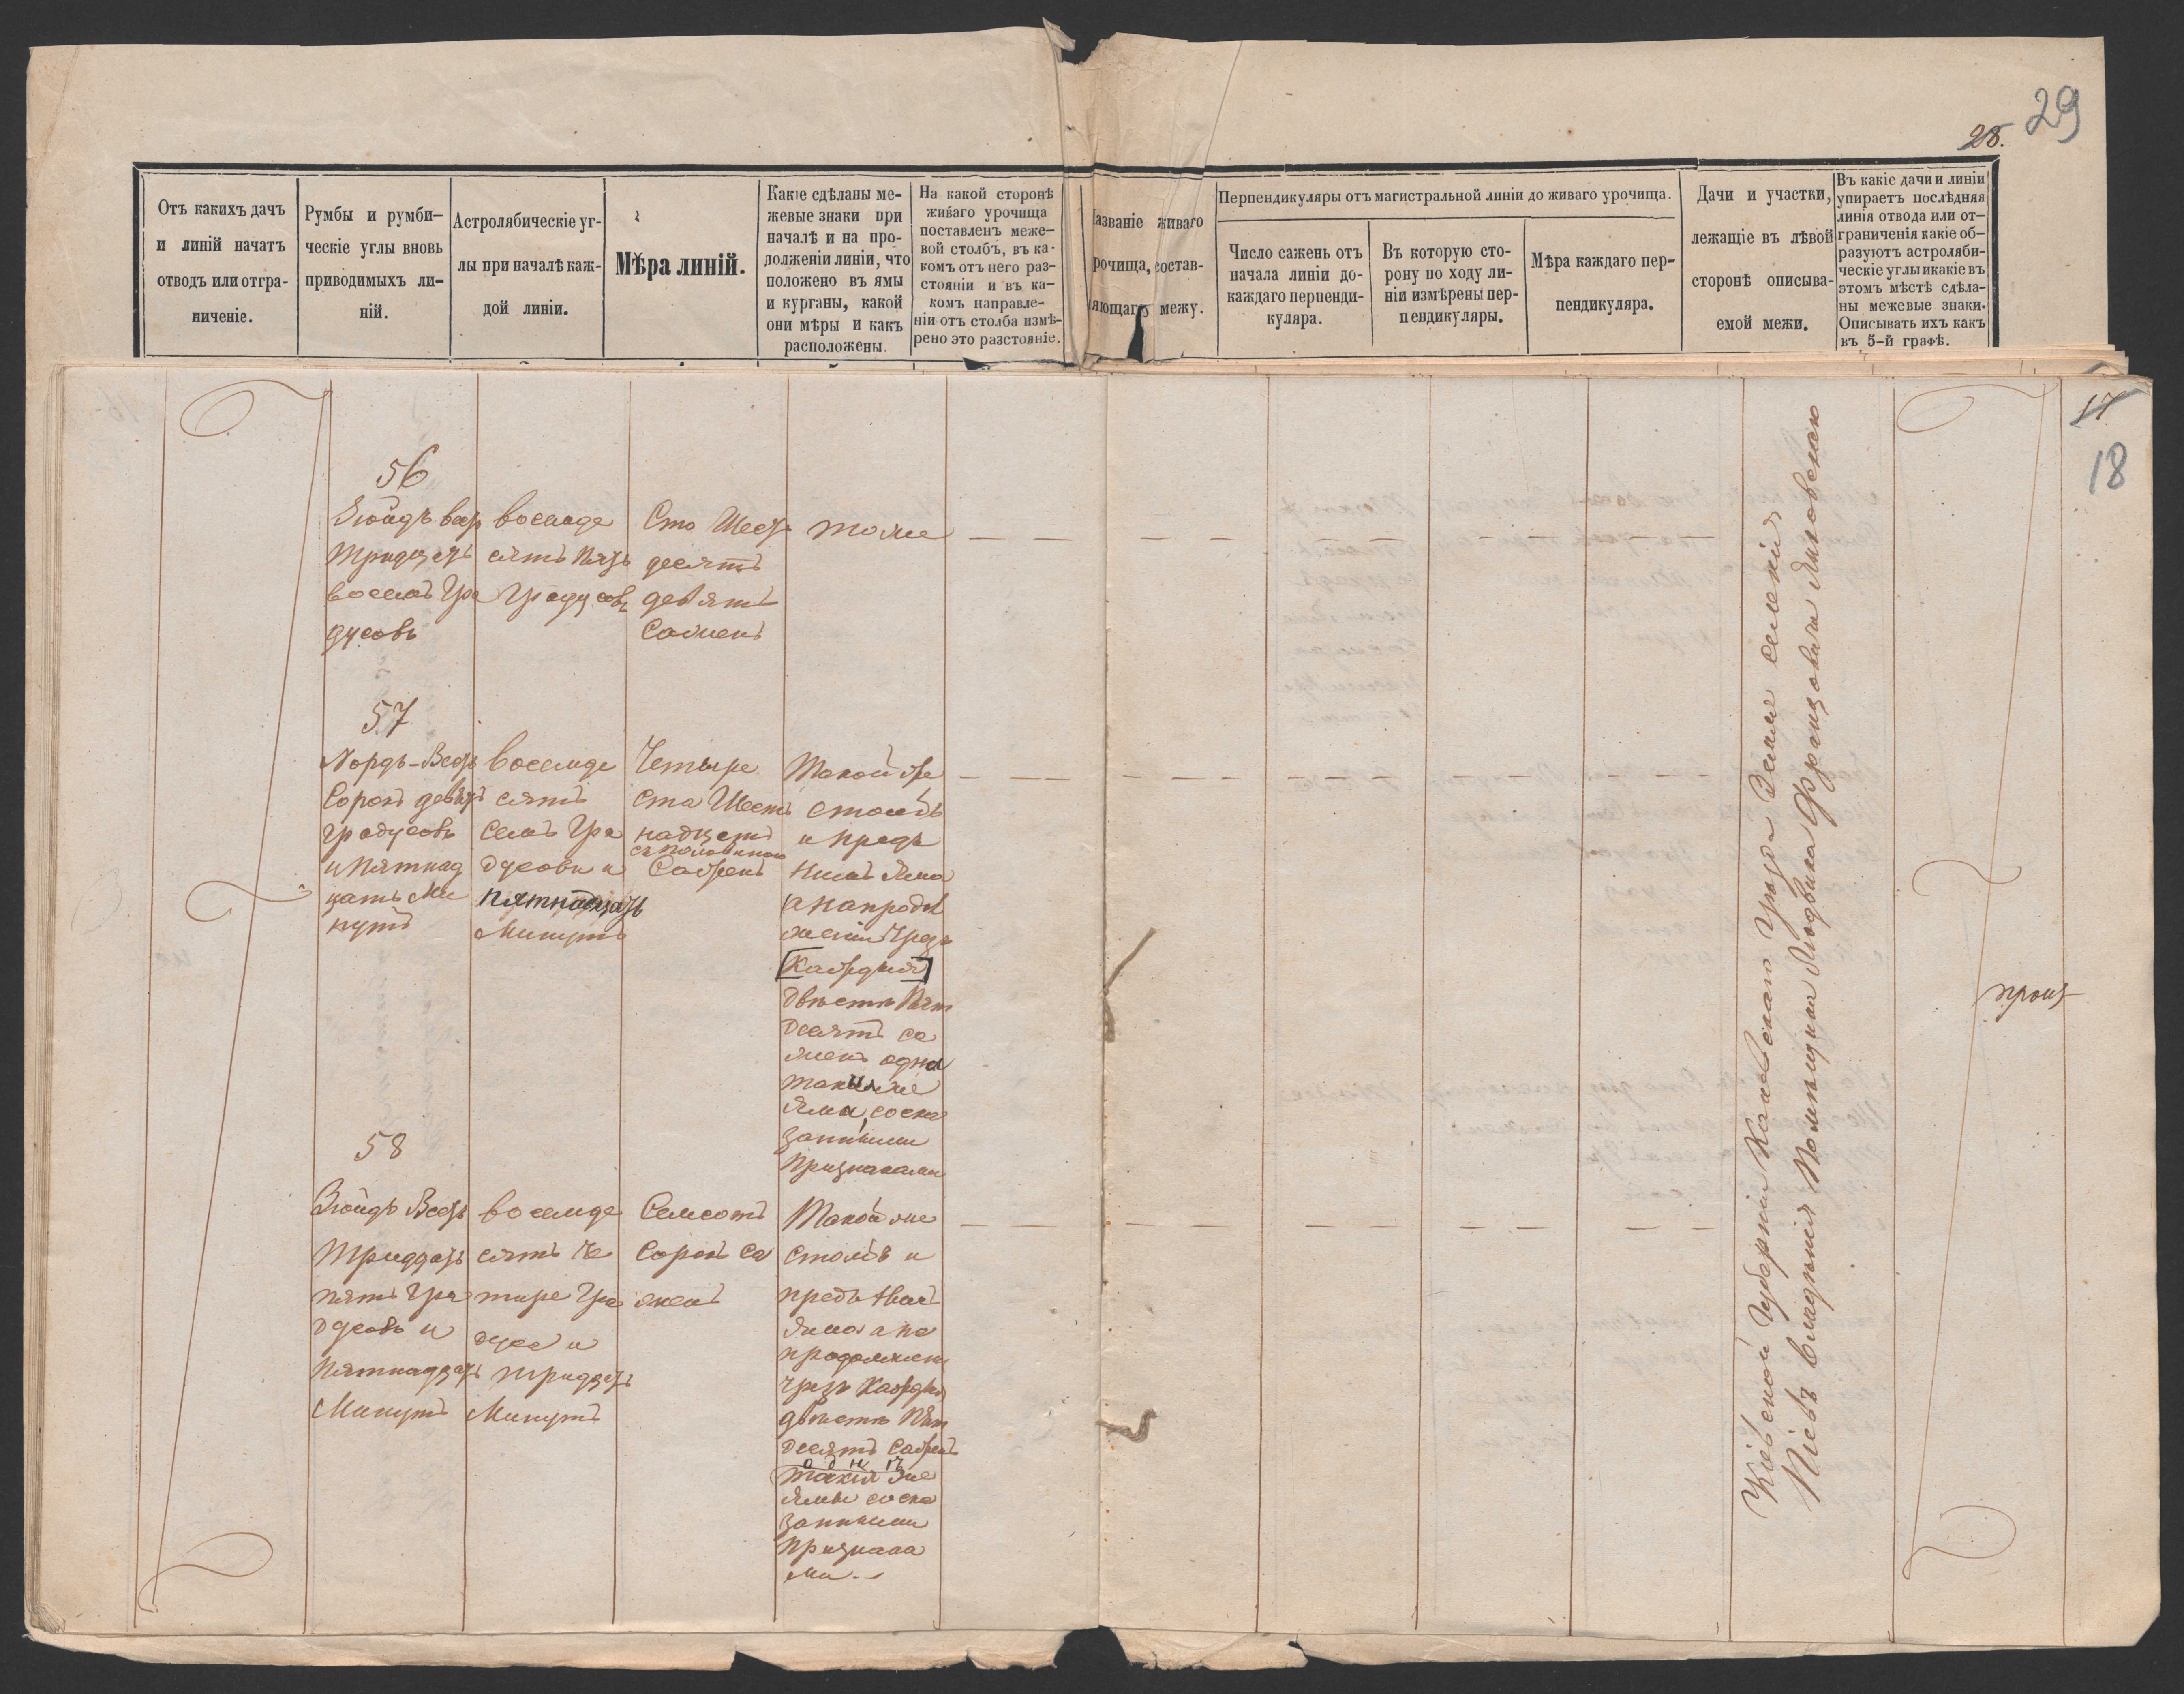 29
28.
Отъ какихъ дачъ
и линій начатъ
отводъ или отгра-
ниченіе.
Румбы и румби-
ческіе углы вновь
приводимыхъ ли-
ній.
Астролябическіе уг-
лы при началѣ каж-
дой линіи.
Мѣра линій.
Какіе сдѣланы ме-
жевые знаки при
началѣ и на про-
долженіи линіи, что
положено въ ямы
и курганы, какой
они мѣры и какъ
расположены.
На какой сторонѣ
живаго урочища
поставленъ меже-
вой столбъ, въ ка-
комъ отъ него раз-
стояніи и въ ка-
комъ направле-
ніи отъ столба измѣ-
рено это разстояніе.
азваніе живаго
рочища, состав-
ляющаго межу.
Перпендикуляры отъ магистральной линіи до живаго урочища.
Число сажень отъ
начала линіи до
каждаго перпенди-
куляра.
Въ которую сто-
рону по ходу ли-
ніи измѣрены пер-
пендикуляры.
Мѣра каждаго пер-
пендикуляра.
Дачи и участки,
лежащіе въ лѣвой
сторонѣ описыва-
емой межи.
Въ какіе дачи и линіи
упираетъ послѣдняя
линія отвода или от-
граниченія какіе об-
разуютъ астроляби-
ческіе углы и какіе въ
этомъ мѣстѣ сдѣла-
ны межевые знаки.
Описывать ихъ какъ
въ 5-й графѣ.
17
18
56
Зюйдъ вес
тридцать
восемъ гра
дусовъ
восемде
сятъ пять
градусовъ
Сто шесть
десятъ
девять
Сажень
тоже
57
Нордъ-Весть
Сорокъ девять
градусовъ
и пятнад
цать Ми
нутъ
восемде
сятъ
семь гра
дусовъ и
пятнадцать
Минутъ
Четыре
ста Шест
надцать
съ половиною
Сажень
Такой же
столбъ
и предъ
нимъ яма
а на продол
женіи чрезъ
[каждыя]
двѣсти пят
десятъ са
жень одна
такая же
яма, со ска
занными
признаками
58
Зюйдъ Весть
Тридцать
пять гра
дусовъ и
пятнадцать
Минутъ
восемде
сятъ че
тыре гра
дуса и
тридцать
Минутъ
Семсотъ
Сорокъ са
жень
Такой же
столбъ и
предъ
яма а на
продолжен
чрезъ кажды
двѣсти пят
десятъ сажень
однѣ
такія же
ямы со ска
занными
признака
ми. -
Кіевской Губерніи Каневскаго уѣзда Земля селенія
владѣнія Помѣщика Людвика Францовича